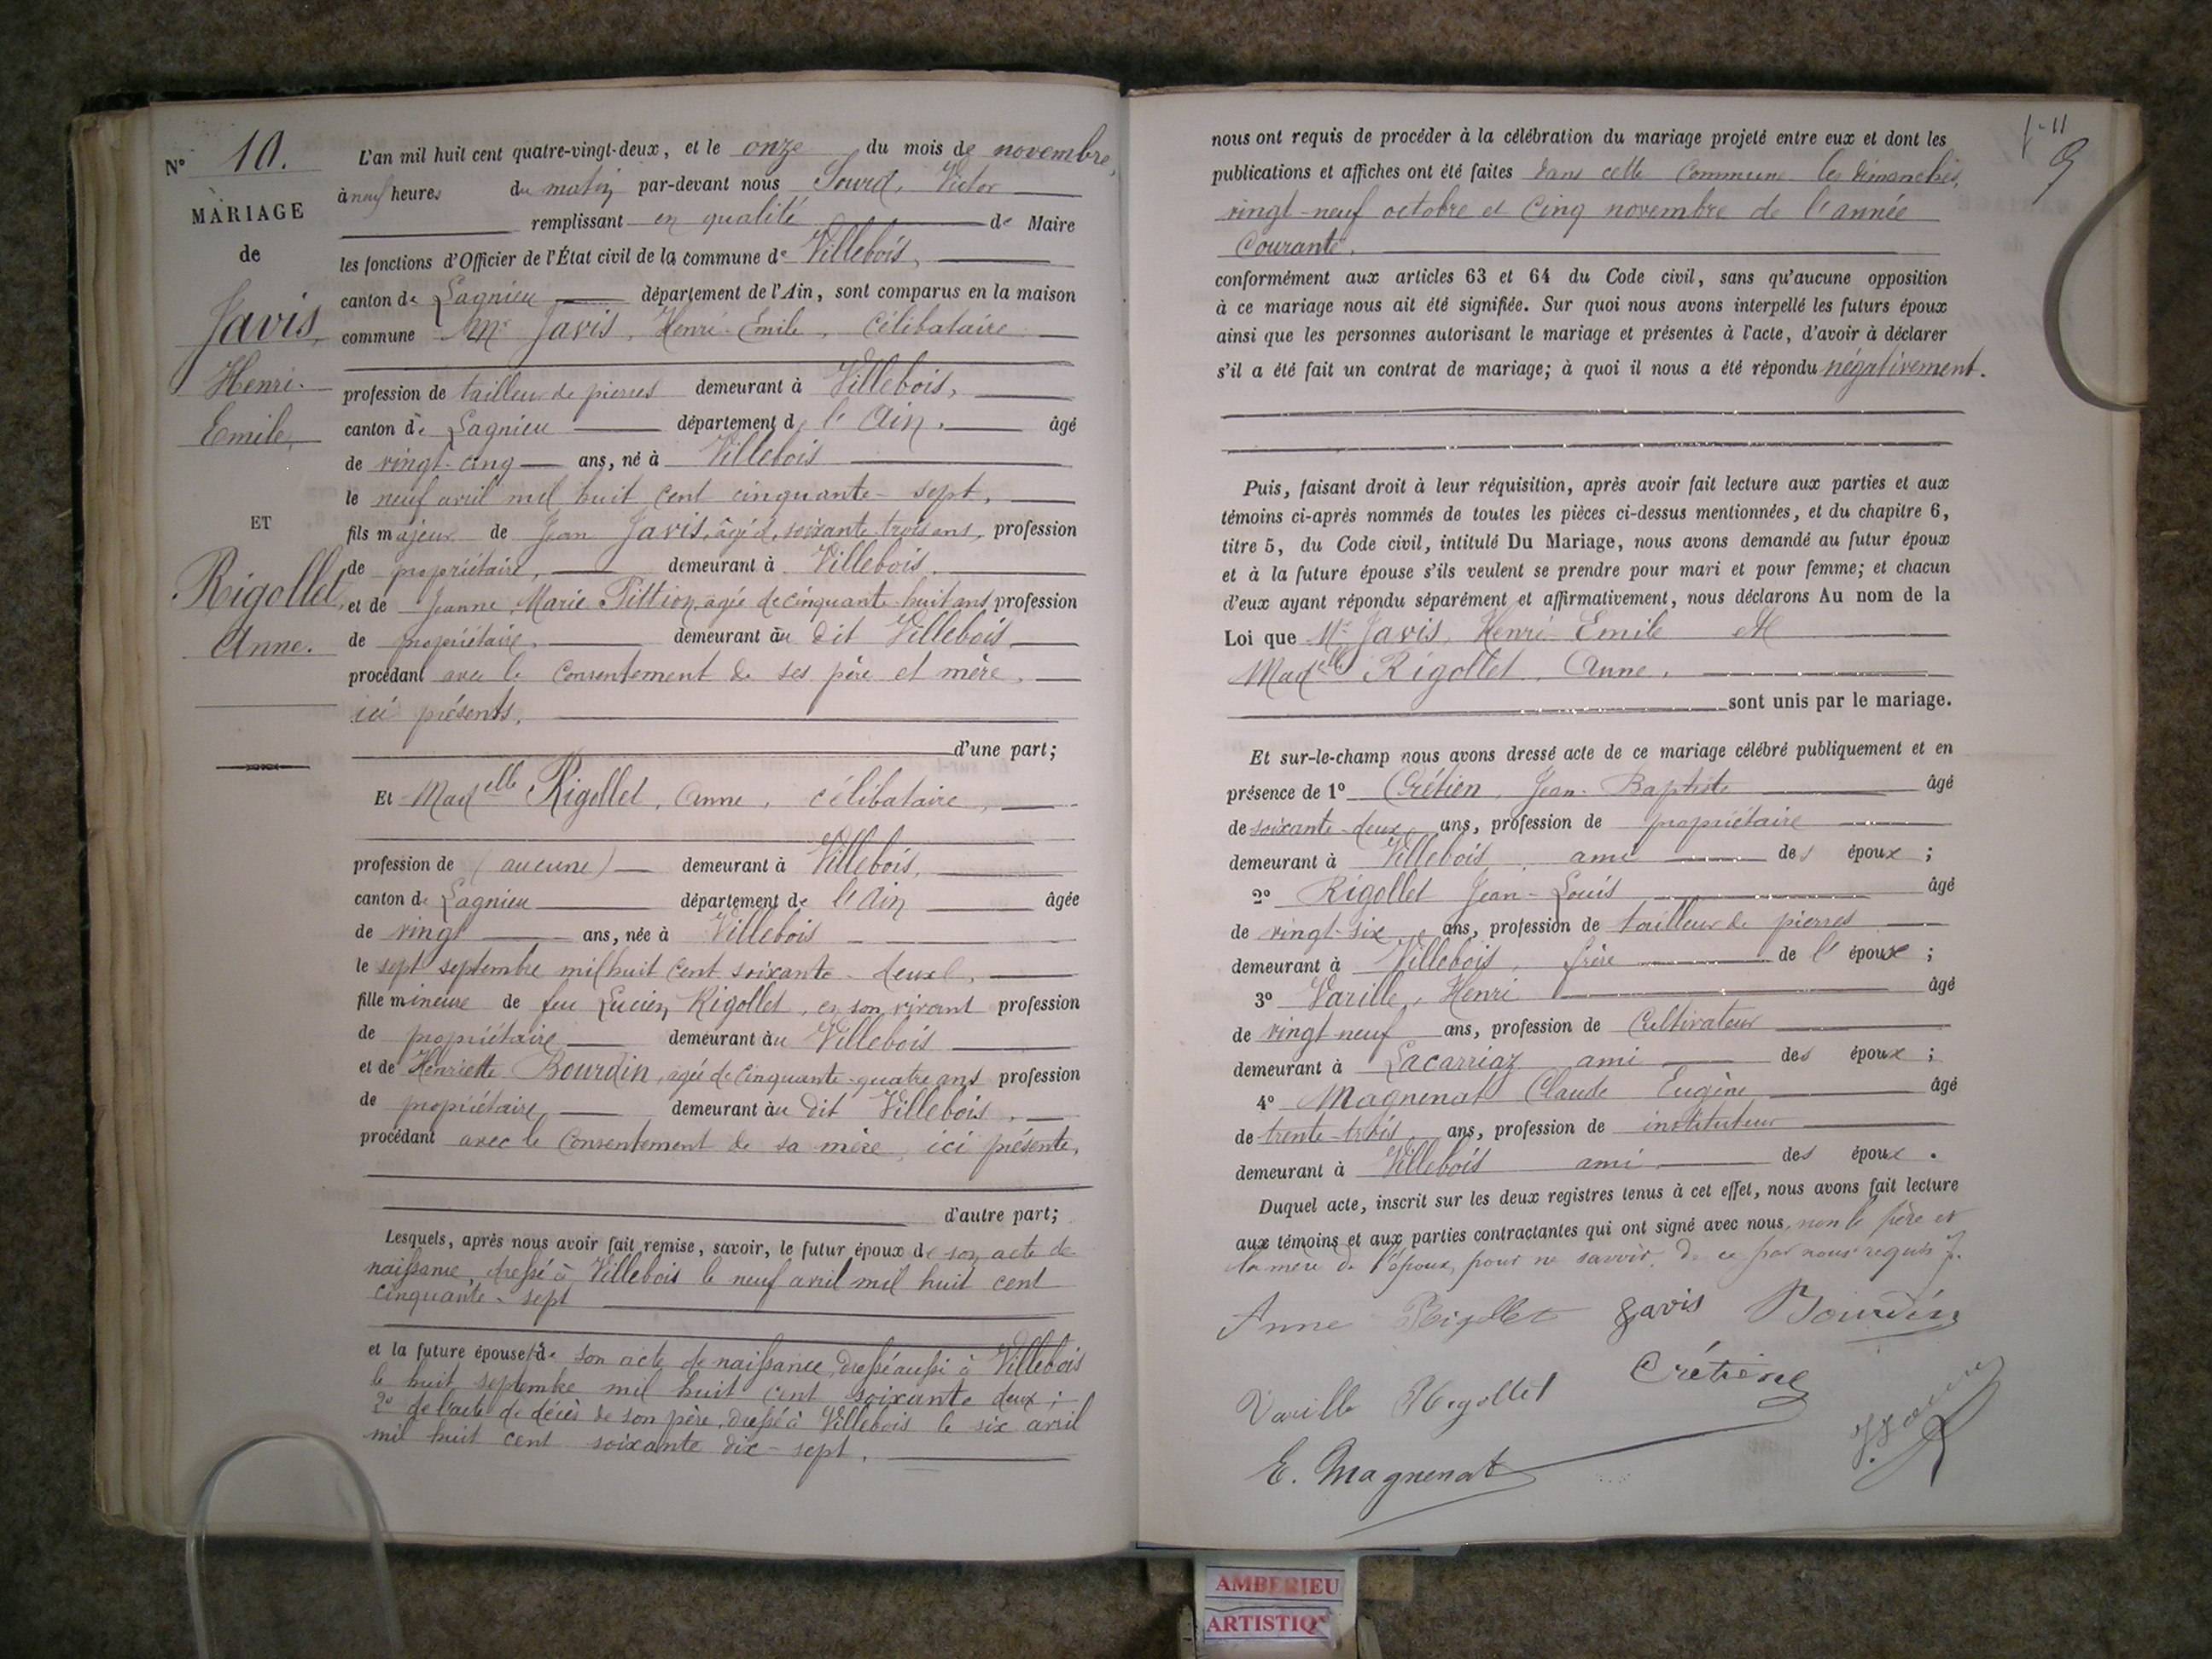 N° 10.
MARIAGE
de
Javis,
Henri-
Emile,
ET
Rigollet,
Anne.
L'an mil huit cent quatre-vingt-deux, et le onze du mois de novembre,
à neuf heures du matin par-devant nous Sourd, Victor
remplissant en qualité de Maire
les fonctions d'Officier de l'État civil de la commune de Villebois,
canton de Lagnieu département de l'Ain, sont comparus en la maison
commune Mr Javis, Henri-Emile, célibataire
profession de tailleur de pierres demeurant à Villebois,
canton de Lagnieu département de l'Ain. âgé
de vingt-cinq ans, né à Villebois
le neuf avril mil huit cent cinquante-sept,
fils majeur de Jean Javis, âgé de soixante-trois ans, profession
de propriétaire, demeurant à Villebois.
et de Jeanne Marie Tittion, âgée de cinquante-huit ans, profession
de propriétaire, demeurant au dit Villebois
procédant avec le consentement de ses père et mère,
ici présents,
d'une part;
Et Madelle Rigollet, Anne, célibataire,
profession de (aucune) demeurant à Villebois,
canton de Lagnieu département de l'Ain âgée
de vingt ans, née à Villebois
le sept septembre mil huit cent soixante-deux,
fille mineure de feu Lucien Rigollet, en son vivant profession
de propriétaire demeurant au Villebois
et de Henriette Bourdin, âgée de cinquante-quatre ans profession
de propriétaire, demeurant au dit Villebois,
procédant avec le consentement de sa mère, ici présente,
d'autre part;
Lesquels, après nous avoir fait remise, savoir, le futur époux de son acte de
naissance, dressé à Villebois le neuf avril mil huit cent
cinquante-sept
et la future épouse de son acte de naissance dressé aussi à Villebois
le huit septembre mil huit cent soixante deux;
2° de l'acte de décès de son père, dressé à Villebois le six avril
mil huit cent soixante dix-sept.
9
nous ont requis de procéder à la célébration du mariage projeté entre eux et dont les
publications et affiches ont été faites dans cette commune les dimanches,
vingt-neuf octobre et cinq novembre de l'année
courante.
conformément aux articles 63 et 64 du Code civil, sans qu'aucune opposition
à ce mariage nous ait été signifiée. Sur quoi nous avons interpellé les futurs époux
ainsi que les personnes autorisant le mariage et présentes à l'acte, d'avoir à déclarer
s'il a été fait un contrat de mariage; à quoi il nous a été répondu négativement.
Puis, faisant droit à leur réquisition, après avoir fait lecture aux parties et aux
témoins ci-après nommés de toutes les pièces ci-dessus mentionnées, et du chapitre 6,
titre 5, du Code civil, intitulé Du Mariage, nous avons demandé au futur époux
et à la future épouse s'ils veulent se prendre pour mari et pour femme; et chacun
d'eux ayant répondu séparément et affirmativement, nous déclarons Au nom de la
Loi que Mr Javis, Henri-Emile et
Madelle Rigollet, Anne,
sont unis par le mariage.
Et sur-le-champ nous avons dressé acte de ce mariage célébré publiquement et en
présence de 1° Crétien, Jean-Baptiste âgé
de soixante-deux ans, profession de propriétaire
demeurant à Villebois, ami des époux;
2° Rigollet Jean-Louis âgé
de vingt-six ans, profession de tailleur de pierres
demeurant à Villebois, frère de l'épouse;
3° Varille, Henri âgé
de vingt-neuf ans, profession de cultivateur
demeurant à Lacarriaz ami des époux;
4° Magnenat Claude Eugène âgé
de trente-trois ans, profession de instituteur
demeurant à Villebois ami des époux.
Duquel acte, inscrit sur les deux registres tenus à cet effet, nous avons fait lecture
aux témoins et aux parties contractantes qui ont signé avec nous, non le père et
la mère de l'époux, pour ne savoir, de ce par nous requis
Anne Rigollet Javis Bourdin
Varille Rigollet Crétien
E. Magnenat
AMBERIEU
ARTISTIQ